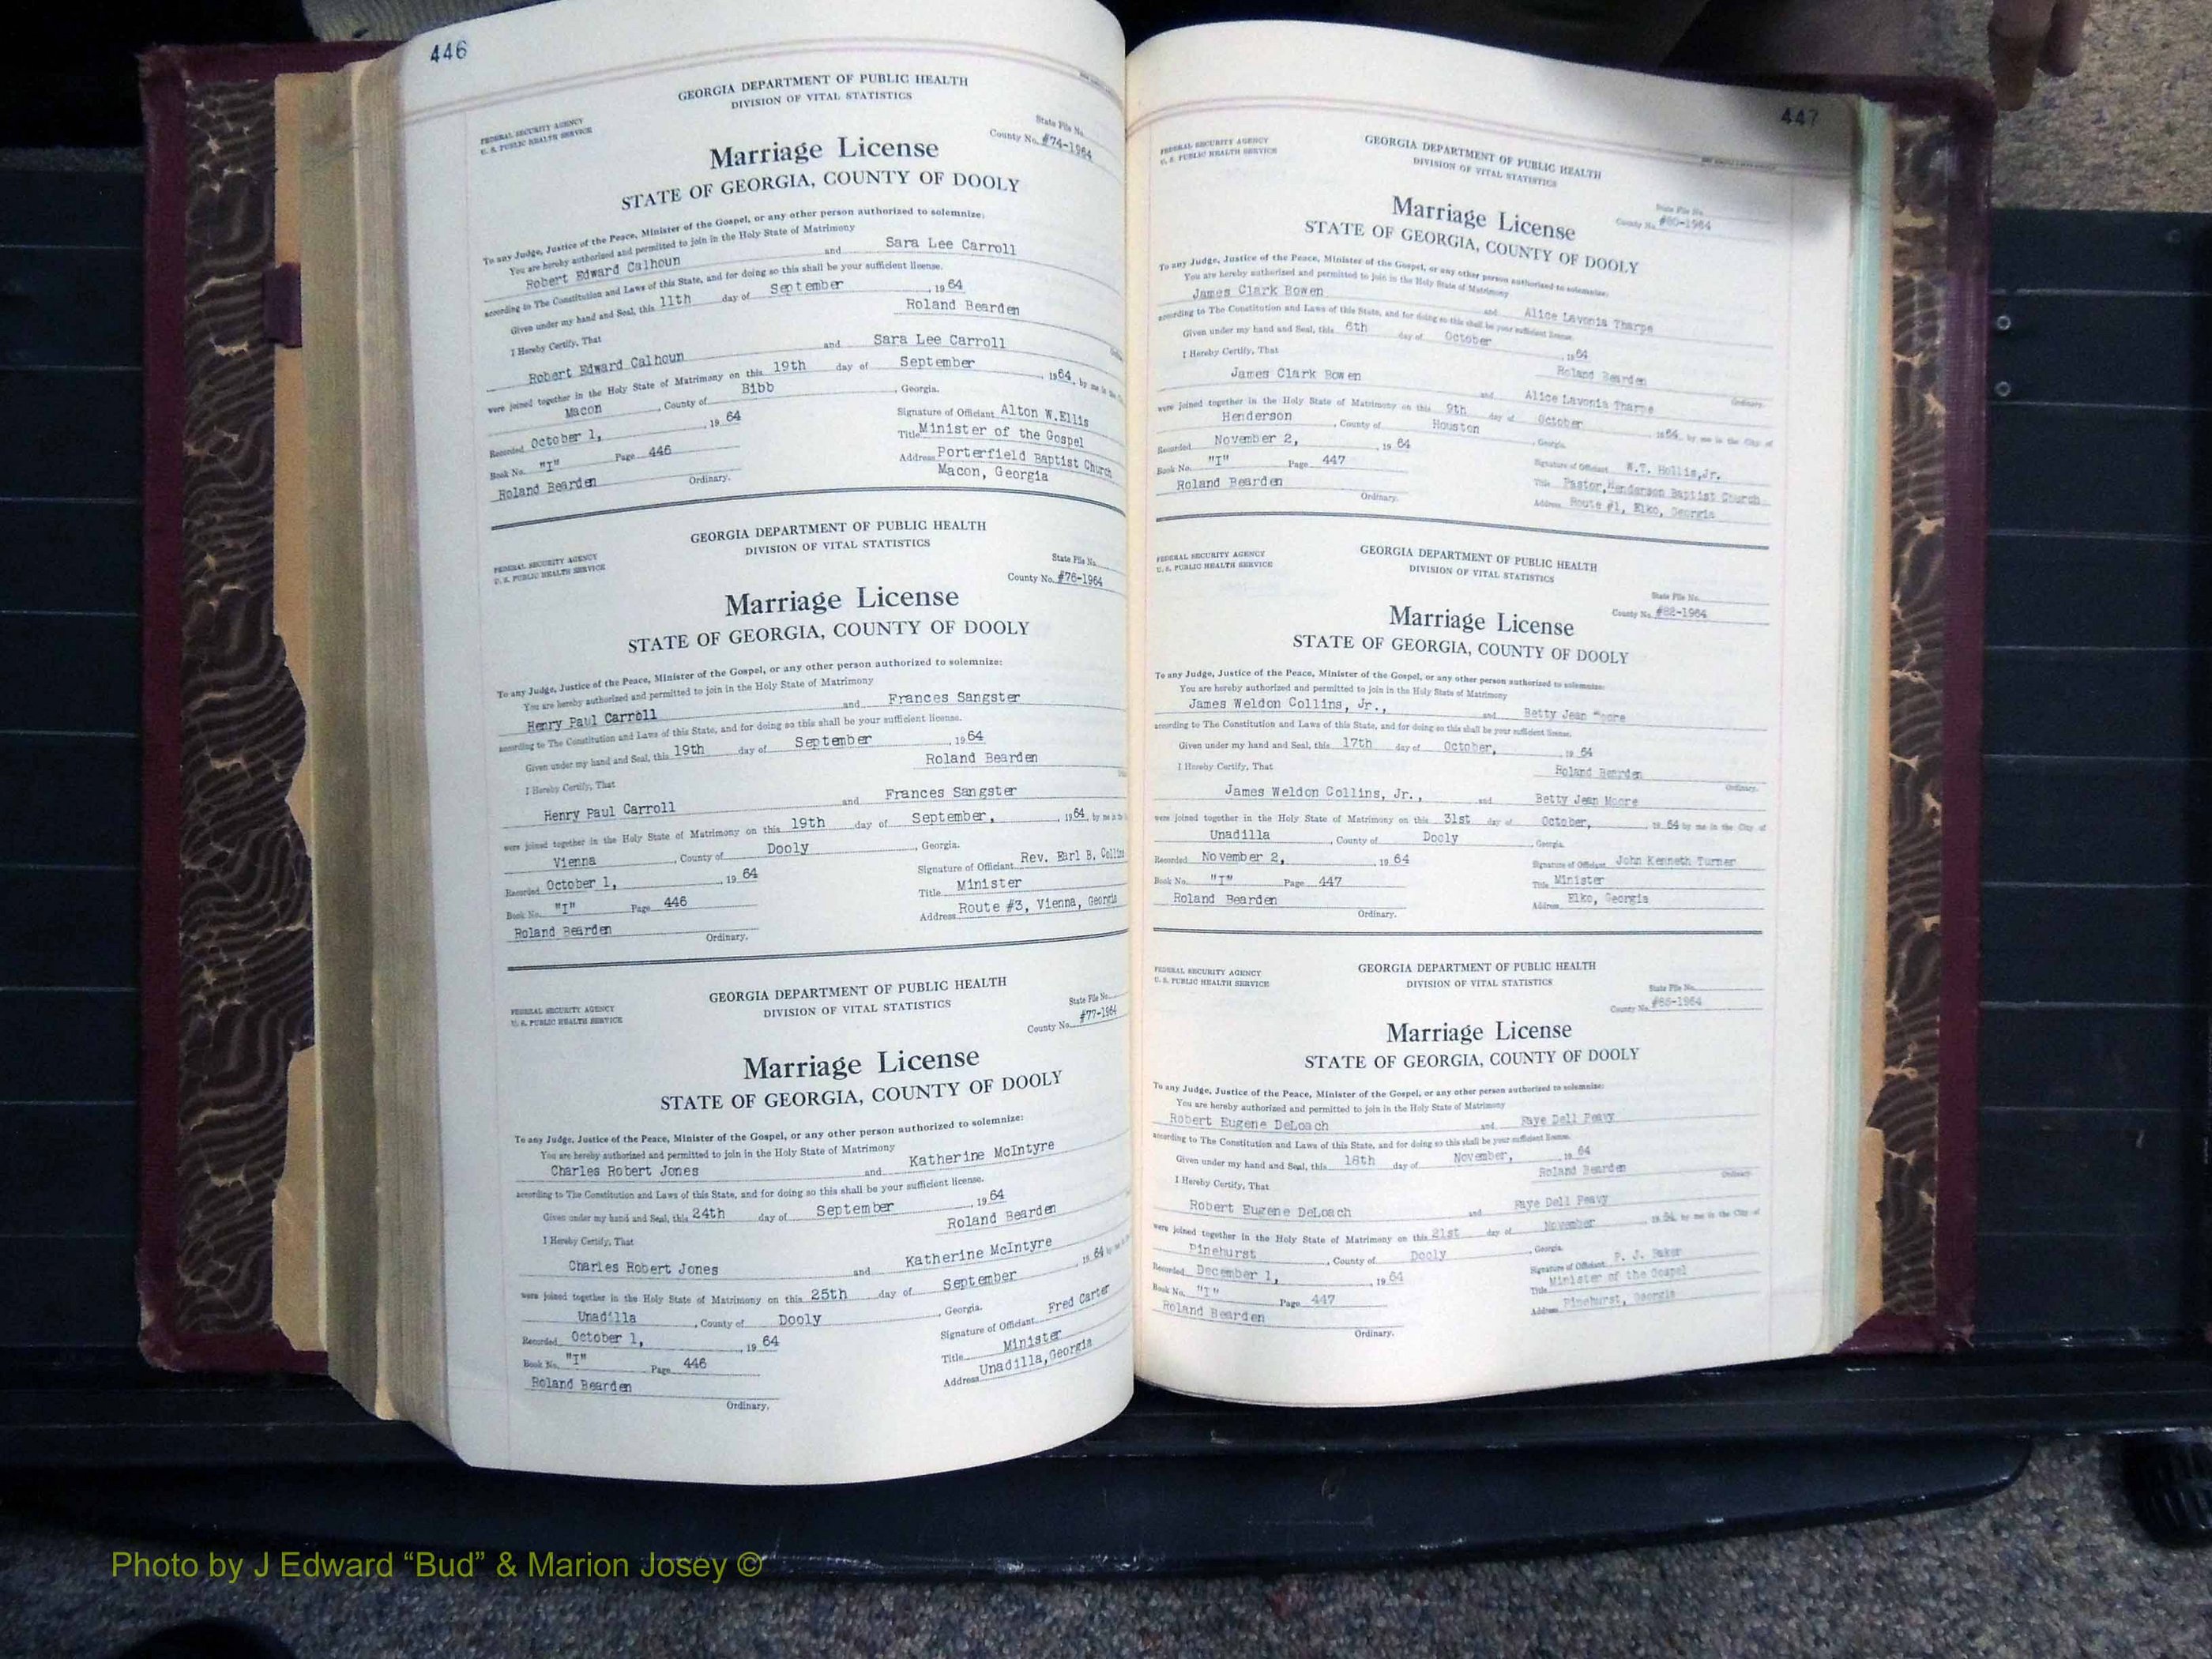 446
GEORGIA DEPARTMENT OF PUBLIC HEALTH
DIVISION OF VITAL STATISTICS
FEDERAL SECURITY AGENCY
U. S. PUBLIC HEALTH SERVICE
State File No.
County No. #74-1964
Marriage License
STATE OF GEORGIA, COUNTY OF DOOLY
To any Judge, Justice of the Peace, Minister of the Gospel, or any other person authorized to solemnize:
You are hereby authorized and permitted to join in the Holy State of Matrimony
Robert Edward Calhoun and Sara Lee Carroll
according to The Constitution and Laws of this State, and for doing so this shall be your sufficient license.
Given under my hand and Seal, this 11th day of September, 1964
Roland Bearden
I Hereby Certify, That
Robert Edward Calhoun and Sara Lee Carroll
were joined together in the Holy State of Matrimony on this 19th day of September 1964, by me in the
Macon, County of Bibb, Georgia.
Recorded October 1, 1964
Signature of Officiant Alton W.Ellis
Book No. "I" Page 446
Title Minister of the Gospel
Roland Bearden
Address Porterfield Baptist Church
Ordinary.
Macon, Georgia
GEORGIA DEPARTMENT OF PUBLIC HEALTH
DIVISION OF VITAL STATISTICS
FEDERAL SECURITY AGENCY
U. S. PUBLIC HEALTH SERVICE
State File No.
County No. #76-1964
Marriage License
STATE OF GEORGIA, COUNTY OF DOOLY
To any Judge, Justice of the Peace, Minister of the Gospel, or any other person authorized to solemnize:
You are hereby authorized and permitted to join in the Holy State of Matrimony
Henry Paul Carroll and Frances Sangster
according to The Constitution and Laws of this State, and for doing so this shall be your sufficient license.
Given under my hand and Seal, this 19th day of September, 1964
Roland Bearden
I Hereby Certify, That
Henry Paul Carroll and Frances Sangster
were joined together in the Holy State of Matrimony on this 19th day of September, 1964, by me in
Vienna, County of Dooly, Georgia.
Recorded October 1, 1964
Signature of Officiant Rev. Earl B. Collins
Book No. "I" Page 446
Title Minister
Roland Bearden
Address Route #3, Vienna, Georgia
Ordinary.
GEORGIA DEPARTMENT OF PUBLIC HEALTH
DIVISION OF VITAL STATISTICS
FEDERAL SECURITY AGENCY
U. S. PUBLIC HEALTH SERVICE
State File No.
County No. #77-1964
Marriage License
STATE OF GEORGIA, COUNTY OF DOOLY
To any Judge, Justice of the Peace, Minister of the Gospel, or any other person authorized to solemnize:
You are hereby authorized and permitted to join in the Holy State of Matrimony
Charles Robert Jones and Katherine McIntyre
according to The Constitution and Laws of this State, and for doing so this shall be your sufficient license.
Given under my hand and Seal, this 24th day of September, 1964
Roland Bearden
I Hereby Certify, That
Charles Robert Jones and Katherine McIntyre
were joined together in the Holy State of Matrimony on this 25th day of September, 1964 by me in
Unadilla, County of Dooly, Georgia.
Recorded October 1, 1964
Signature of Officiant Fred Carter
Book No. "I" Page 446
Title Minister
Roland Bearden
Address Unadilla, Georgia
Ordinary.
447
FEDERAL SECURITY AGENCY
U. S. PUBLIC HEALTH SERVICE
GEORGIA DEPARTMENT OF PUBLIC HEALTH
DIVISION OF VITAL STATISTICS
State File No.
County No. #80-1964
Marriage License
STATE OF GEORGIA, COUNTY OF DOOLY
To any Judge, Justice of the Peace, Minister of the Gospel, or any other person authorized to solemnize:
You are hereby authorized and permitted to join in the Holy State of Matrimony
James Clark Bowen and Alice Lavonia Tharpe
according to The Constitution and Laws of this State, and for doing so this shall be your sufficient license.
Given under my hand and Seal, this 6th day of October, 1964
Roland Bearden
I Hereby Certify, That
Ordinary.
James Clark Bowen and Alice Lavonia Tharpe
were joined together in the Holy State of Matrimony on this 9th day of October 1964, by me in the City of
Henderson, County of Houston, Georgia.
Recorded November 2, 1964
Signature of Officiant W.T. Hollis,Jr.
Book No. "I" Page 447
Title Pastor,Henderson Baptist Church
Roland Bearden
Address Route #1, Elko, Georgia
Ordinary.
FEDERAL SECURITY AGENCY
U. S. PUBLIC HEALTH SERVICE
GEORGIA DEPARTMENT OF PUBLIC HEALTH
DIVISION OF VITAL STATISTICS
State File No.
County No. #82-1964
Marriage License
STATE OF GEORGIA, COUNTY OF DOOLY
To any Judge, Justice of the Peace, Minister of the Gospel, or any other person authorized to solemnize:
You are hereby authorized and permitted to join in the Holy State of Matrimony
James Weldon Collins, Jr., and Betty Jean Moore
according to The Constitution and Laws of this State, and for doing so this shall be your sufficient license.
Given under my hand and Seal, this 17th day of October, 1964
Roland Bearden
I Hereby Certify, That
Ordinary.
James Weldon Collins, Jr., and Betty Jean Moore
were joined together in the Holy State of Matrimony on this 31st day of October, 1964 by me in the City of
Unadilla, County of Dooly, Georgia.
Recorded November 2, 1964
Signature of Officiant John Kenneth Turner
Book No. "I" Page 447
Title Minister
Roland Bearden
Address Elko, Georgia
Ordinary.
FEDERAL SECURITY AGENCY
U. S. PUBLIC HEALTH SERVICE
GEORGIA DEPARTMENT OF PUBLIC HEALTH
DIVISION OF VITAL STATISTICS
State File No.
County No.
Marriage License
STATE OF GEORGIA, COUNTY OF DOOLY
To any Judge, Justice of the Peace, Minister of the Gospel, or any other person authorized to solemnize:
You are hereby authorized and permitted to join in the Holy State of Matrimony
Robert Eugene DeLoach and Faye Dell Peavy
according to The Constitution and Laws of this State, and for doing so this shall be your sufficient license.
Given under my hand and Seal, this day of November, 1964
Roland Bearden
I Hereby Certify, That
Ordinary.
Robert Eugene DeLoach and Faye Dell Peavy
were joined together in the Holy State of Matrimony on this 21st day of November 1964, by me in the City of
Pinehurst, County of Dooly, Georgia.
Recorded December 1, 1964
Signature of Officiant P. J. Baker
Book No. "I" Page 447
Title Minister of the Gospel
Roland Bearden
Address Pinehurst, Georgia
Ordinary.
Photo by J Edward “Bud” & Marion Josey ©